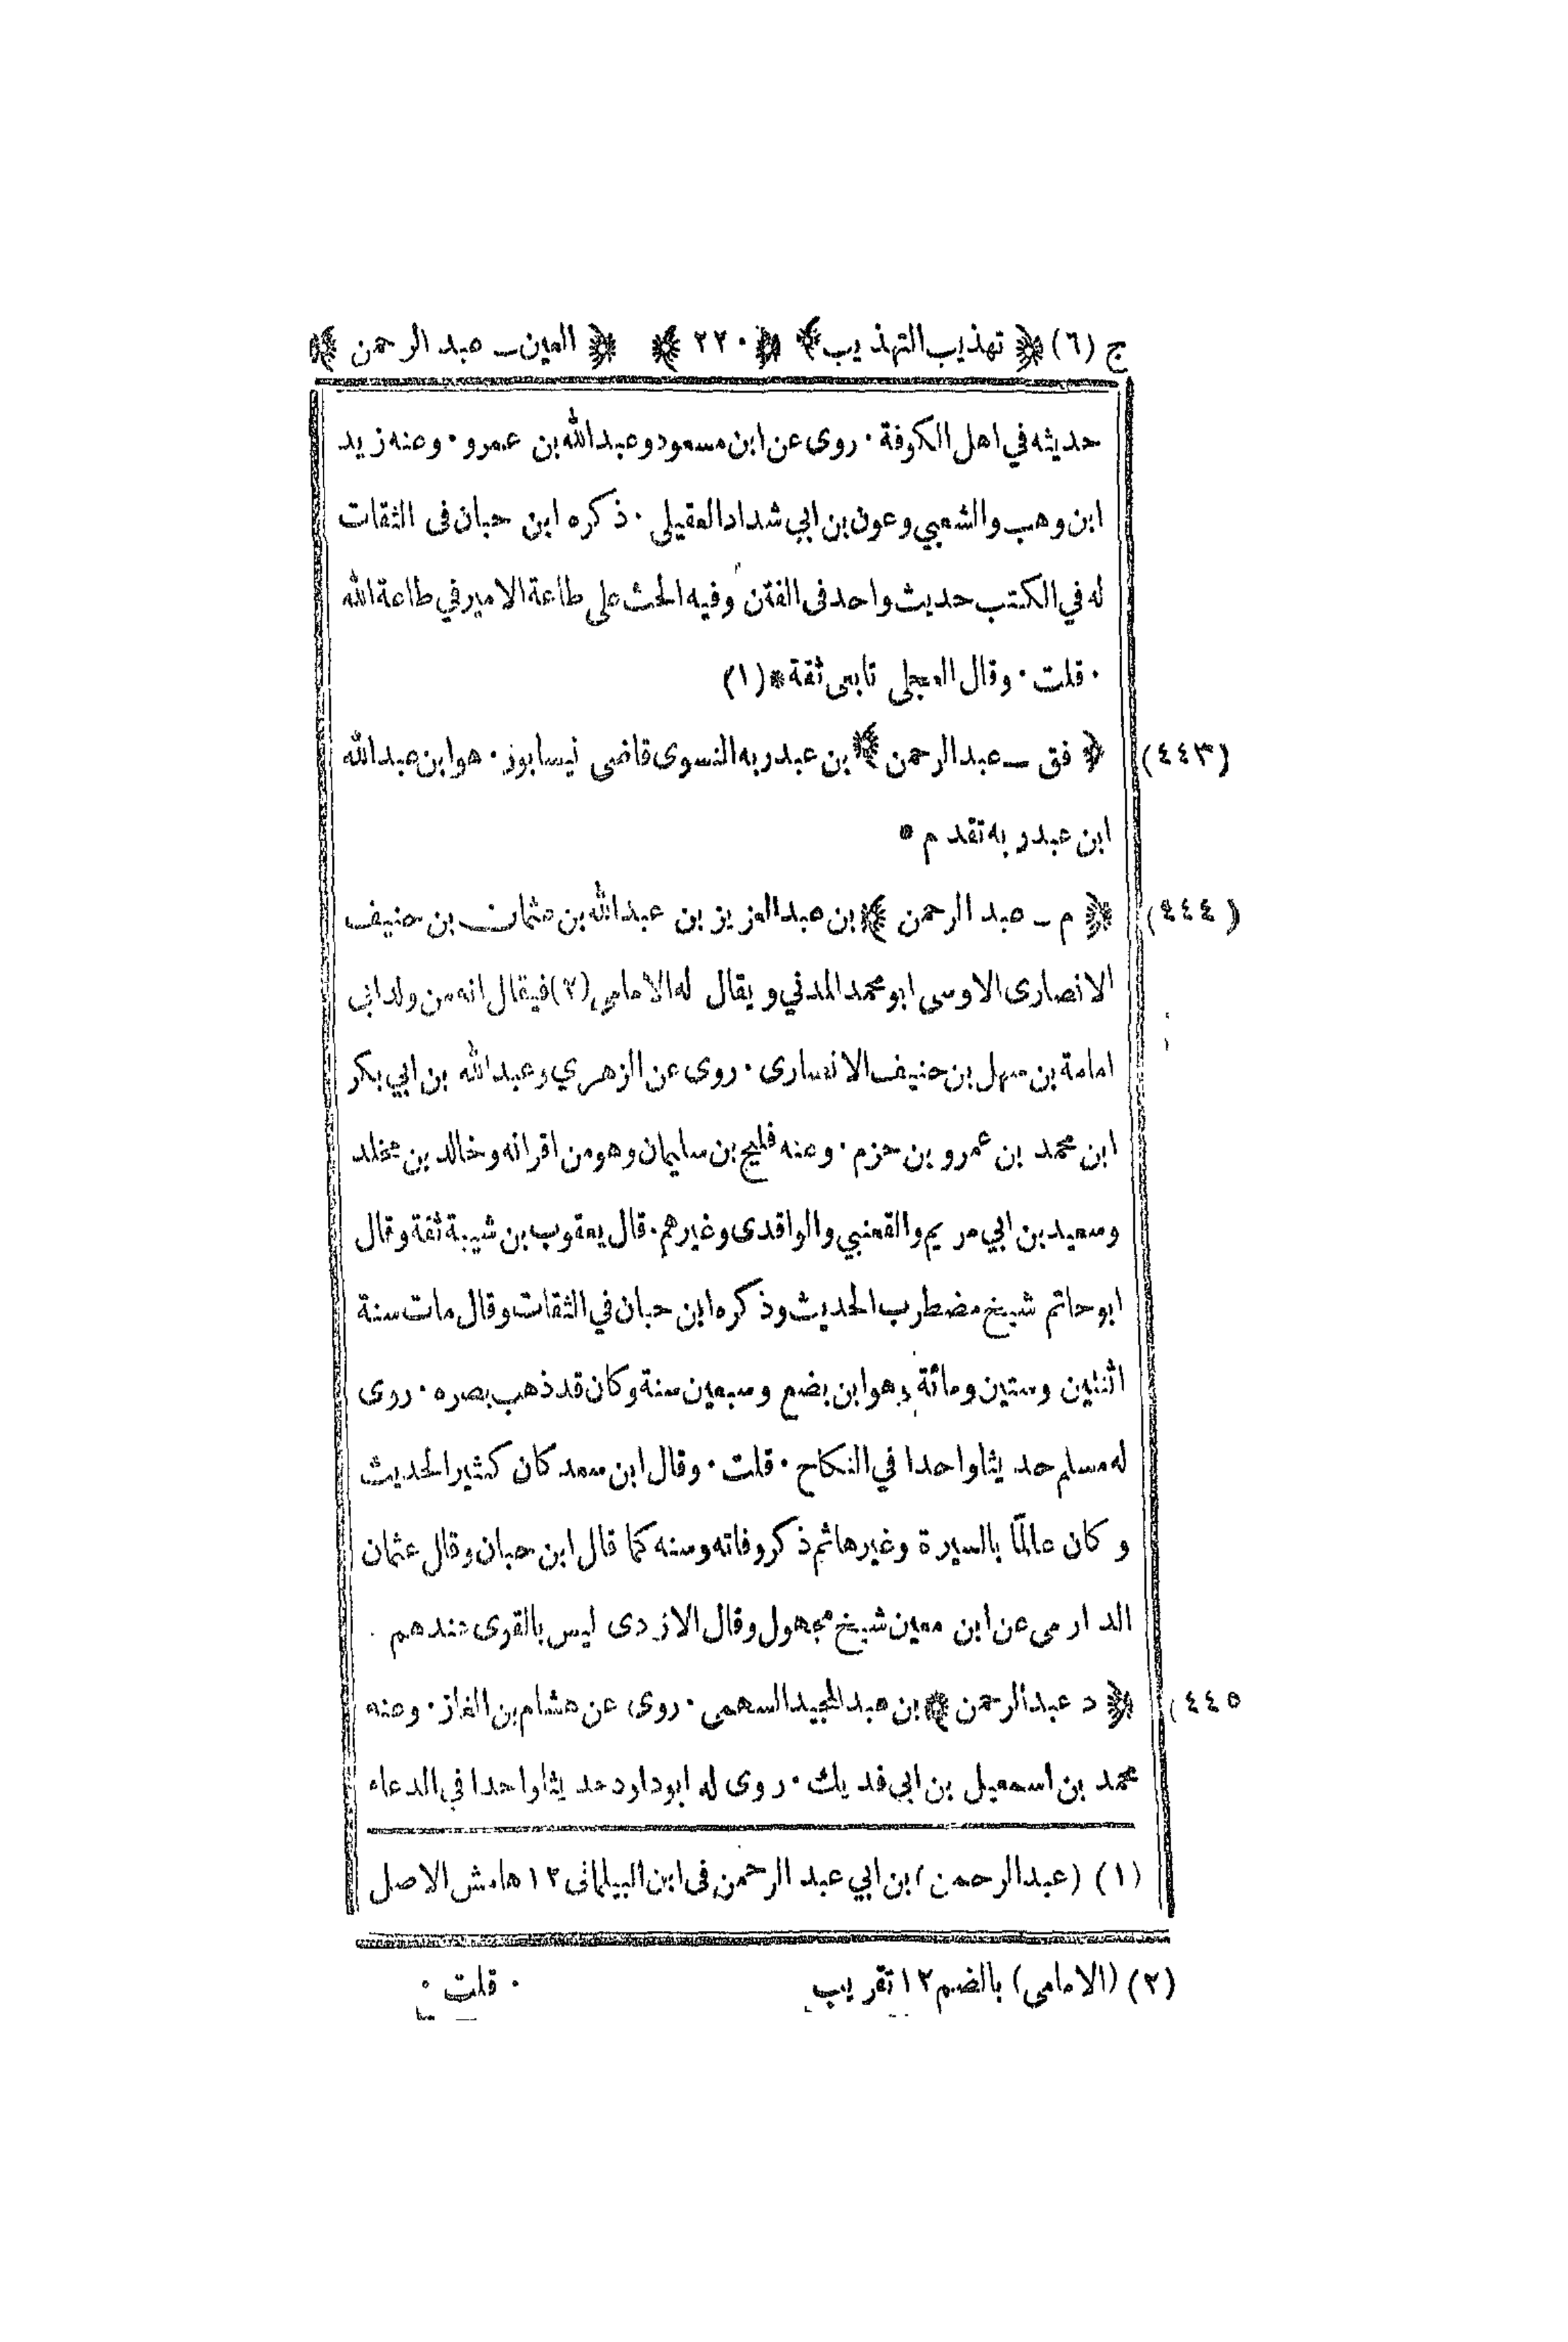 ج (٦) ﴿ تهذيب التهذيب ﴾ ﴿ ٢٢٠ ﴾ ﴿ العين ـ عبد الرحمن ﴾
حديثه في اهل الكوفة · روى عن ابن مسعود وعبد الله بن عمرو · وعنه زيد
ابن وهب والشعبي وعون بن ابي شداد العقيلى · ذكره ابن حبان فى الثقات
له في الكتب حديث واحد فى الفتن وفيه الحث على طاعة الامير في طاعة الله
· قلت · وقال العجلى تابعى ثقة * (١)
(٤٤٣) ﴿ فق ـ عبد الرحمن ﴾ بن عبد ربه النسوى قاضى نيسابوز · هو ابن عبد الله
ابن عبد ربه تقدم *
(٤٤٤) ﴿ م ـ عبد الرحمن ﴾ بن عبد العزيز بن عبد الله بن عثمان بن حنيف
الانصارى الاوسى ابو محمد المدني ويقال له الامامى (٢) فيقال انه من ولد ابى
امامة بن سهل بن حنيف الانصارى · روى عن الزهري وعبد الله بن ابي بكر
ابن محمد بن عمرو بن حزم · وعنه فليح بن سليمان وهو من اقرانه وخالد بن مخلد
وسعيد بن ابي مريم والقعنبي والواقدى وغيرهم · قال يعقوب بن شيبة ثقة وقال
ابو حاتم شيخ مضطرب الحديث وذكره ابن حبان في الثقات وقال مات سنة
اثنتين وستين ومائة وهو ابن بضع وسبعين سنة وكان قد ذهب بصره · روى
له مسلم حديثا واحدا في النكاح · قلت · وقال ابن سعد كان كثير الحديث
وكان عالمًا بالسيرة وغيرها ثم ذكر وفاته وسنه كما قال ابن حبان وقال عثمان
الدارمى عن ابن معين شيخ مجهول وقال الازدى ليس بالقوى عندهم ·
(٤٤٥ ﴿ د عبد الرحمن ﴾ بن عبد المجيد السهمى · روى عن هشام بن الغاز · وعنه
محمد بن اسمعيل بن ابى فديك · روى له ابو داود حديثا واحدا في الدعاء
(١) (عبد الرحمن) بن ابي عبد الرحمن فى ابن البيلمانى ١٢ هامش الاصل
(٢) (الامامى) بالضم ١٢ تقريب · قلت ·